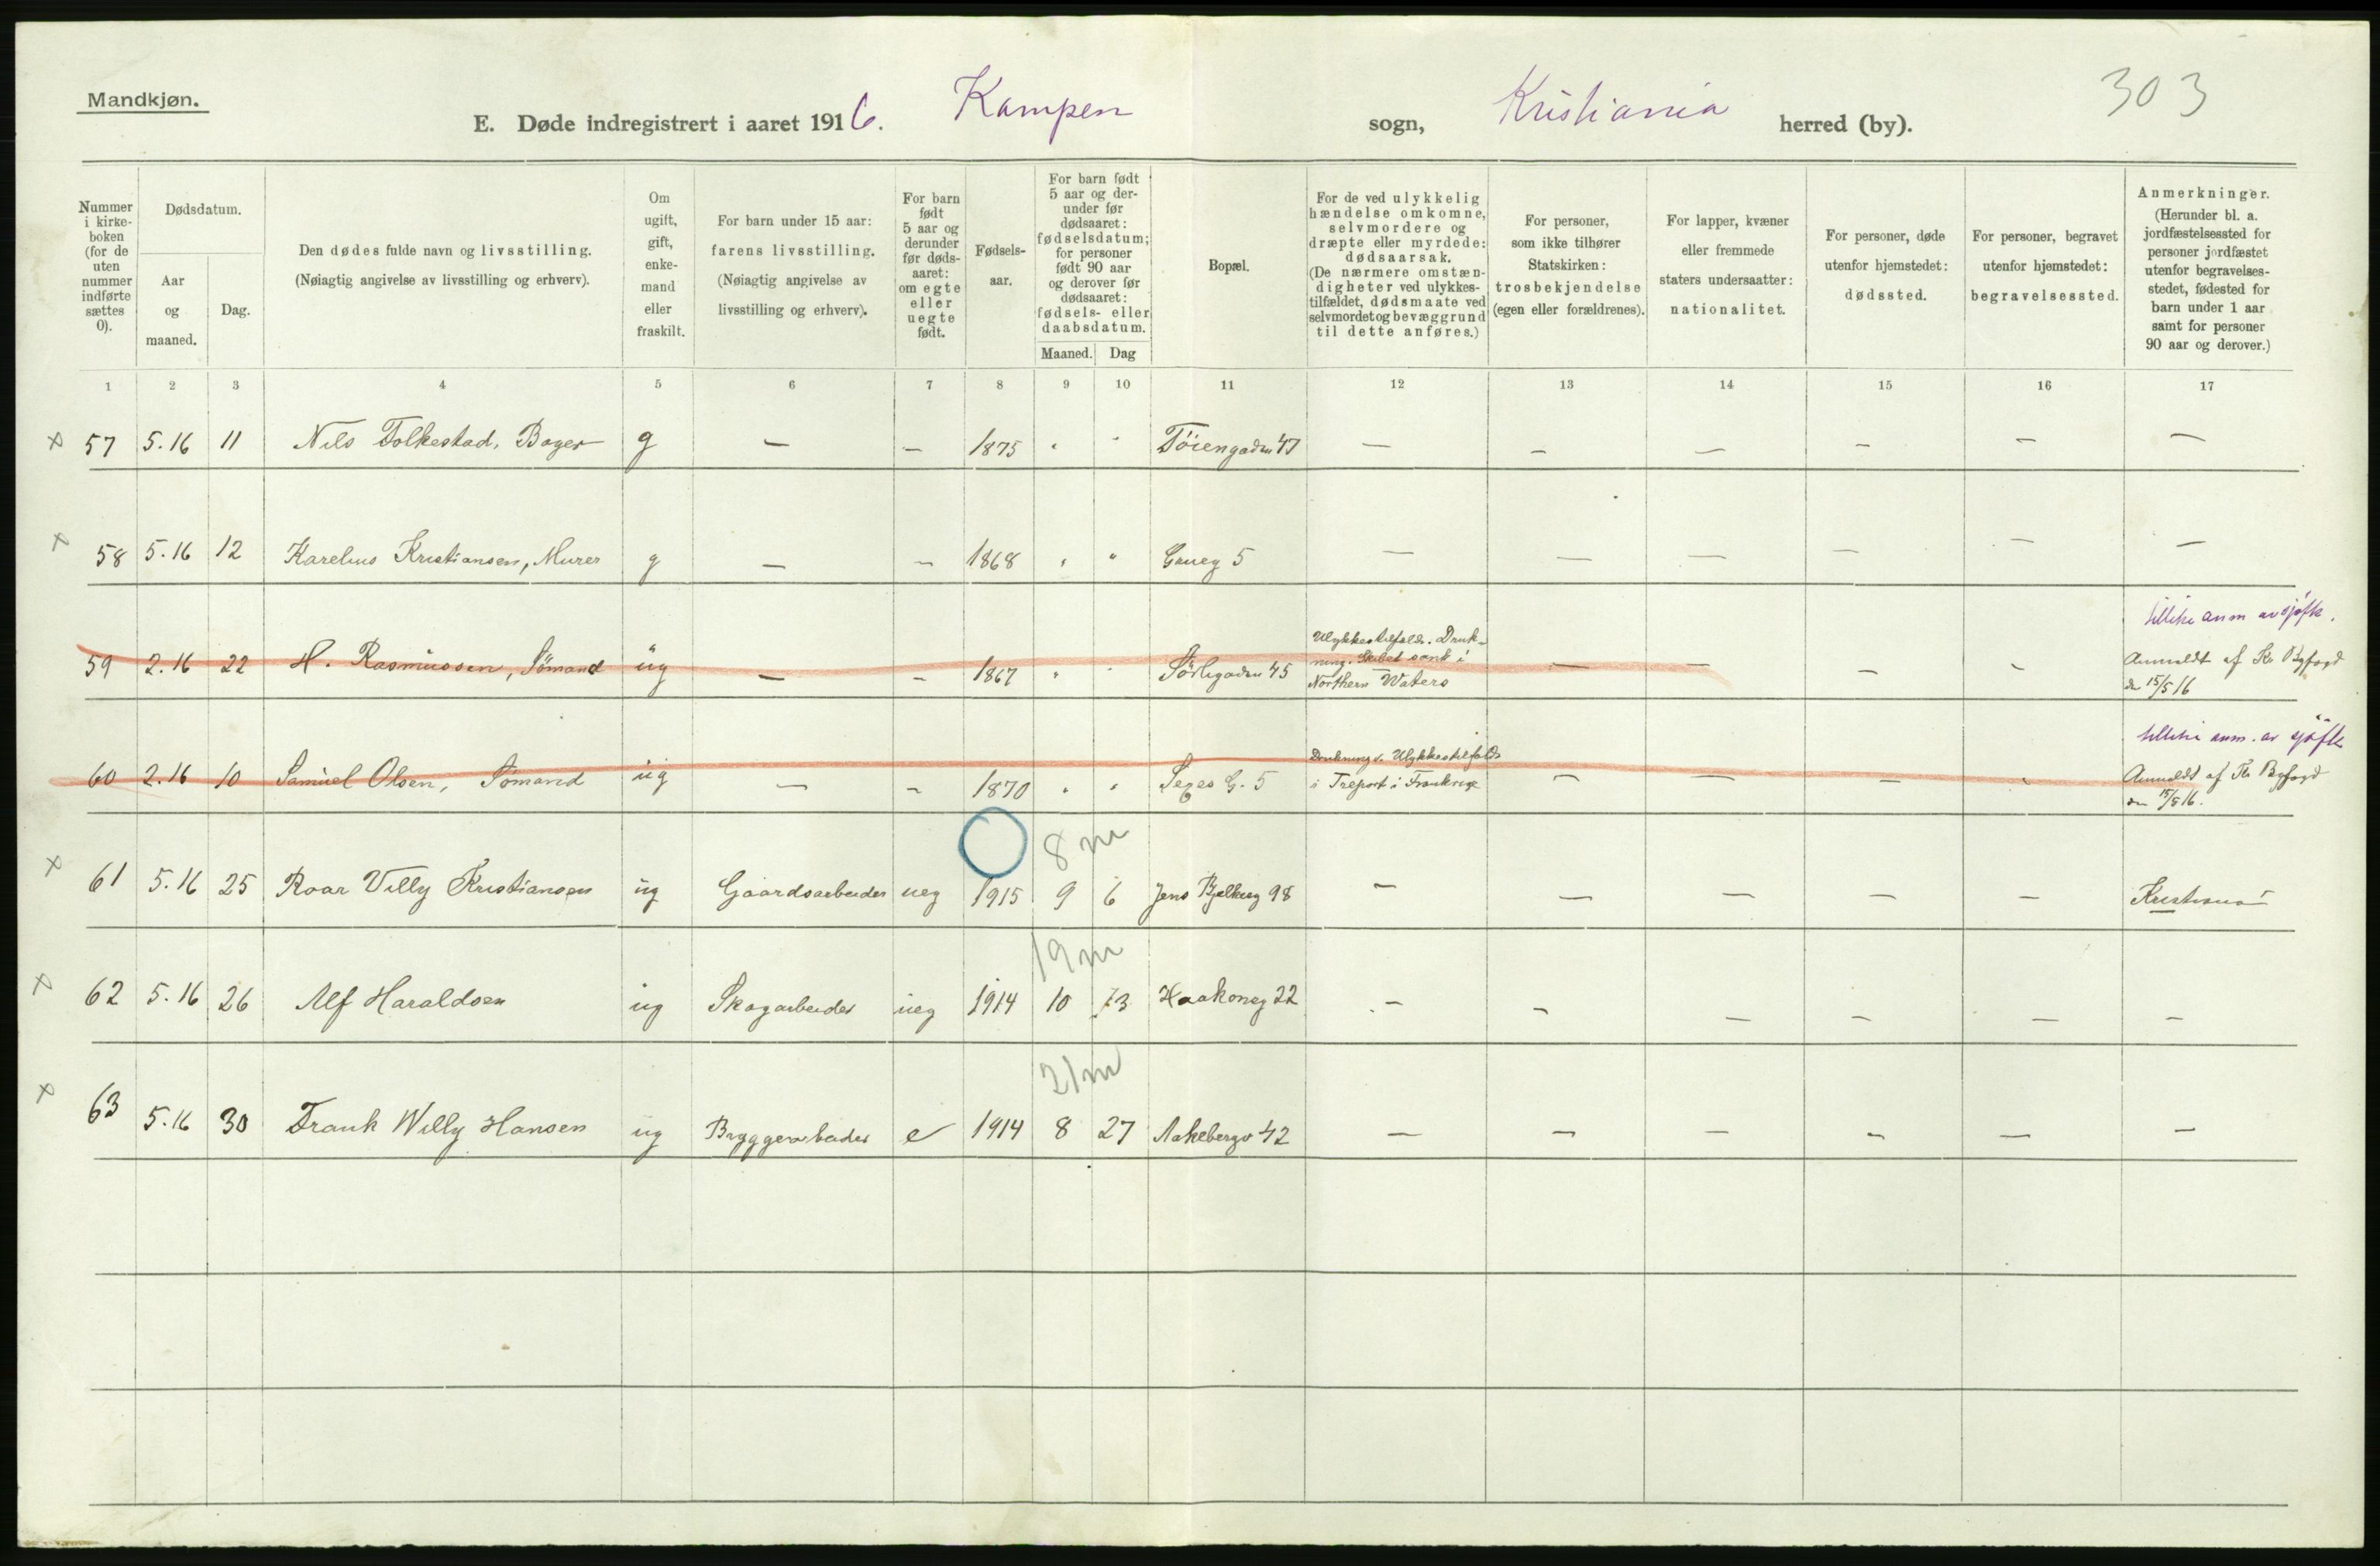 Mandkjøn.
E. Døde indregistrert i aaret 1916. Kampen sogn, Kristiania herred (by).
303
Nummer i kirke- boken (for de uten nummer indførte sættes 0).
Dødsdatum.
Aar og maaned.
Dag.
Den dødes fulde navn og livsstilling.
(Nøiagtig angivelse av livsstilling og erhverv).
Om ugift, gift, enke- mand eller fraskilt.
For barn under 15 aar: farens livsstilling. (Nøiagtig angivelse av livsstilling og erhverv).
For barn født 5 aar og derunder før døds- aaret: om egte eller uegte født.
Fødsels- aar.
For barn født 5 aar og der- under før dødsaaret: fødselsdatum; for personer født 90 aar og derover før dødsaaret: fødsels- eller daabsdatum.
Maaned. Dag
Bopæl.
For de ved ulykkelig hændelse omkomne, selvmordere og dræpte eller myrdede: dødsaarsak. (De nærmere omstæn- digheter ved ulykkes- tilfældet, dødsmaate ved selvmordet og bevæggrund til dette anføres.)
For personer, som ikke tilhører Statskirken: trosbekjendelse (egen eller forældrenes).
For lapper, kvæner eller fremmede staters undersaatter: nationalitet.
For personer, døde utenfor hjemstedet: dødssted.
For personer, begravet utenfor hjemstedet: begravelsessted.
Anmerkninger. (Herunder bl. a. jordfæstelsessted for personer jordfæstet utenfor begravelses- stedet, fødested for barn under 1 aar samt for personer 90 aar og derover.)
1 2 3 4 5 6 7 8 9 10 11 12 13 14 15 16 17
x 57 5.16 11 Nils Folkestad, Bager g — — 1875 " " Töiengaden 47 — — — — — —
x 58 5.16 12 Karelius Kristiansen, Murer g — — 1868 " " Grueg 5 — — — — — —
tillike anm av sjöfk.
59 2.16 22 H. Rasmussen, Sömand ug — — 1867 " " Sörligaden 45 Ulykkestilfælde. Druk- ning. Skibet sank i Northern Waters — — — — Anmeldt af Kr Byfogd den 15/5 16
tillike anm. av sjöfk
60 2.16 10 Samuel Olsen, Sömand ug — — 1870 " " G. 5 Drukning v. Ulykkestilfælde i Treport i Frankrige — — — — Anmeldt af Kr Byfogd den 15/5 16.
8 m
x 61 5.16 25 Roar Villy Kristiansen ug Gaardsarbeider ueg 1915 9 6 Jens Bjelkeg 98 — — — — — Kristiania
19 m
x 62 5.16 26 Alf Haraldsen ug Skogarbeider ueg 1914 10 Haakoneg 22 — — — — — —
21 m
x 63 5.16 30 Frank Willy Hansen ug Bryggerarbeider e 1914 8 27 Aakebergv 42 — — — — — —